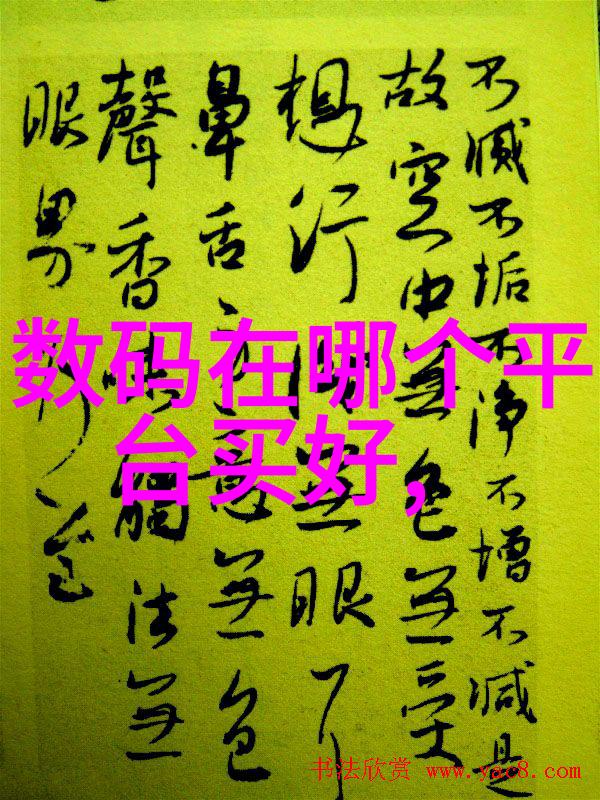 数码在哪个平
台买好,
不滅不垢不净不增不减是
故空中無色無受
想行無眼耳
鼻舌意無色
聲香味觸法無
眼界乃至
书法欣赏 www.yac8.com